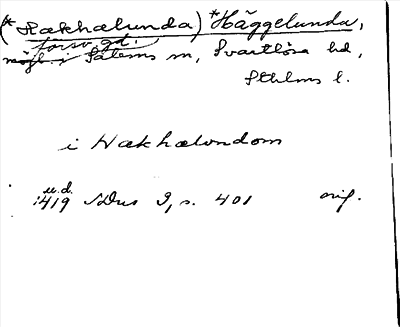 (*Hækhælunda) *Häggelunda,
försv. gd.
möjl. i Salems sn, Svartlösa hd,
Sthlms l.
i Hækhælondom
u.d.
1419 SDns 3, s. 401 orig.